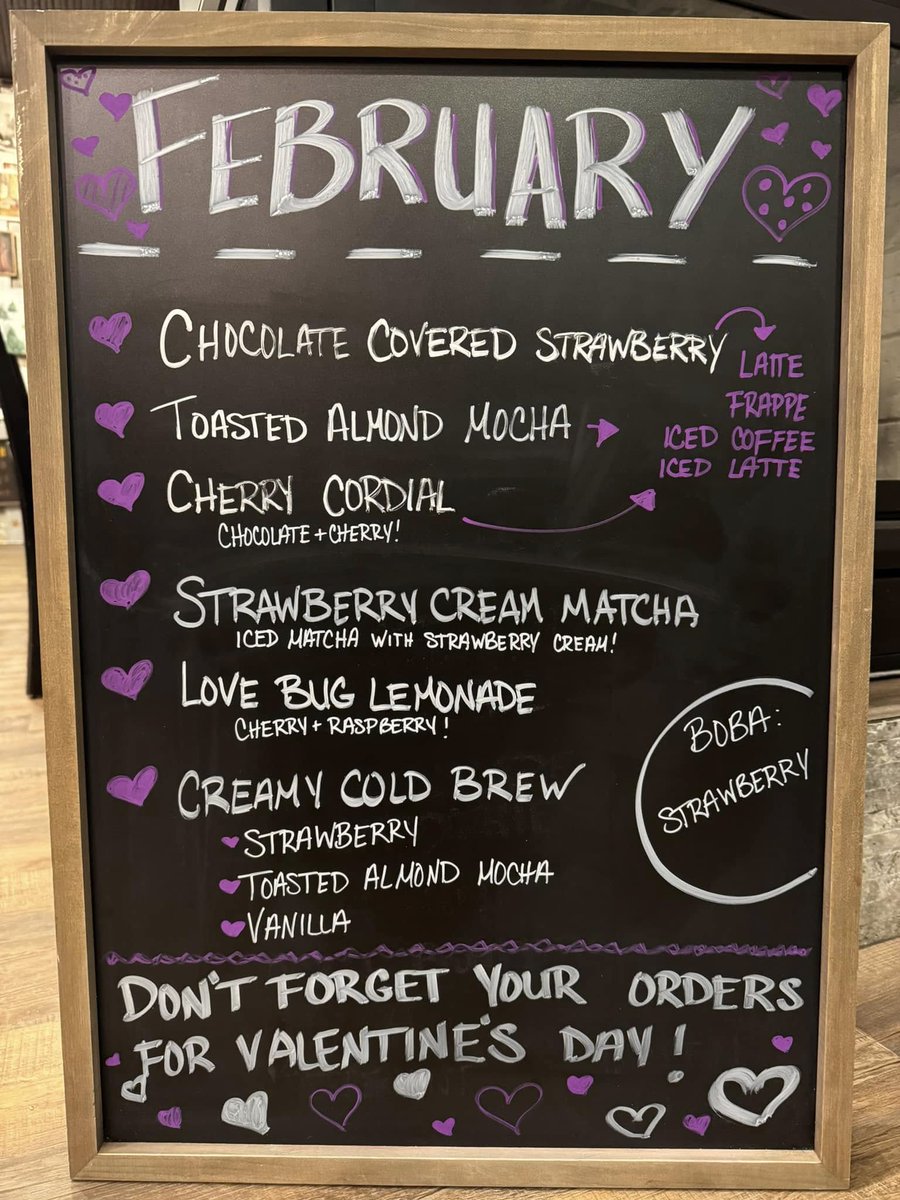 FEBRUARY
CHOCOLATE COVERED STRAWBERRY
LATTE
FRAPPE
ICED COFFEE
ICED LATTE
TOASTED ALMOND MOCHA
CHERRY CORDIAL
CHOCOLATE + CHERRY!
STRAWBERRY CREAM MATCHA
ICED MATCHA WITH STRAWBERRY CREAM!
LOVE BUG LEMONADE
CHERRY + RASPBERRY!
CREAMY COLD BREW
STRAWBERRY
TOASTED ALMOND MOCHA
VANILLA
BOBA:
STRAWBERRY
DON'T FORGET YOUR ORDERS
FOR VALENTINE'S DAY!